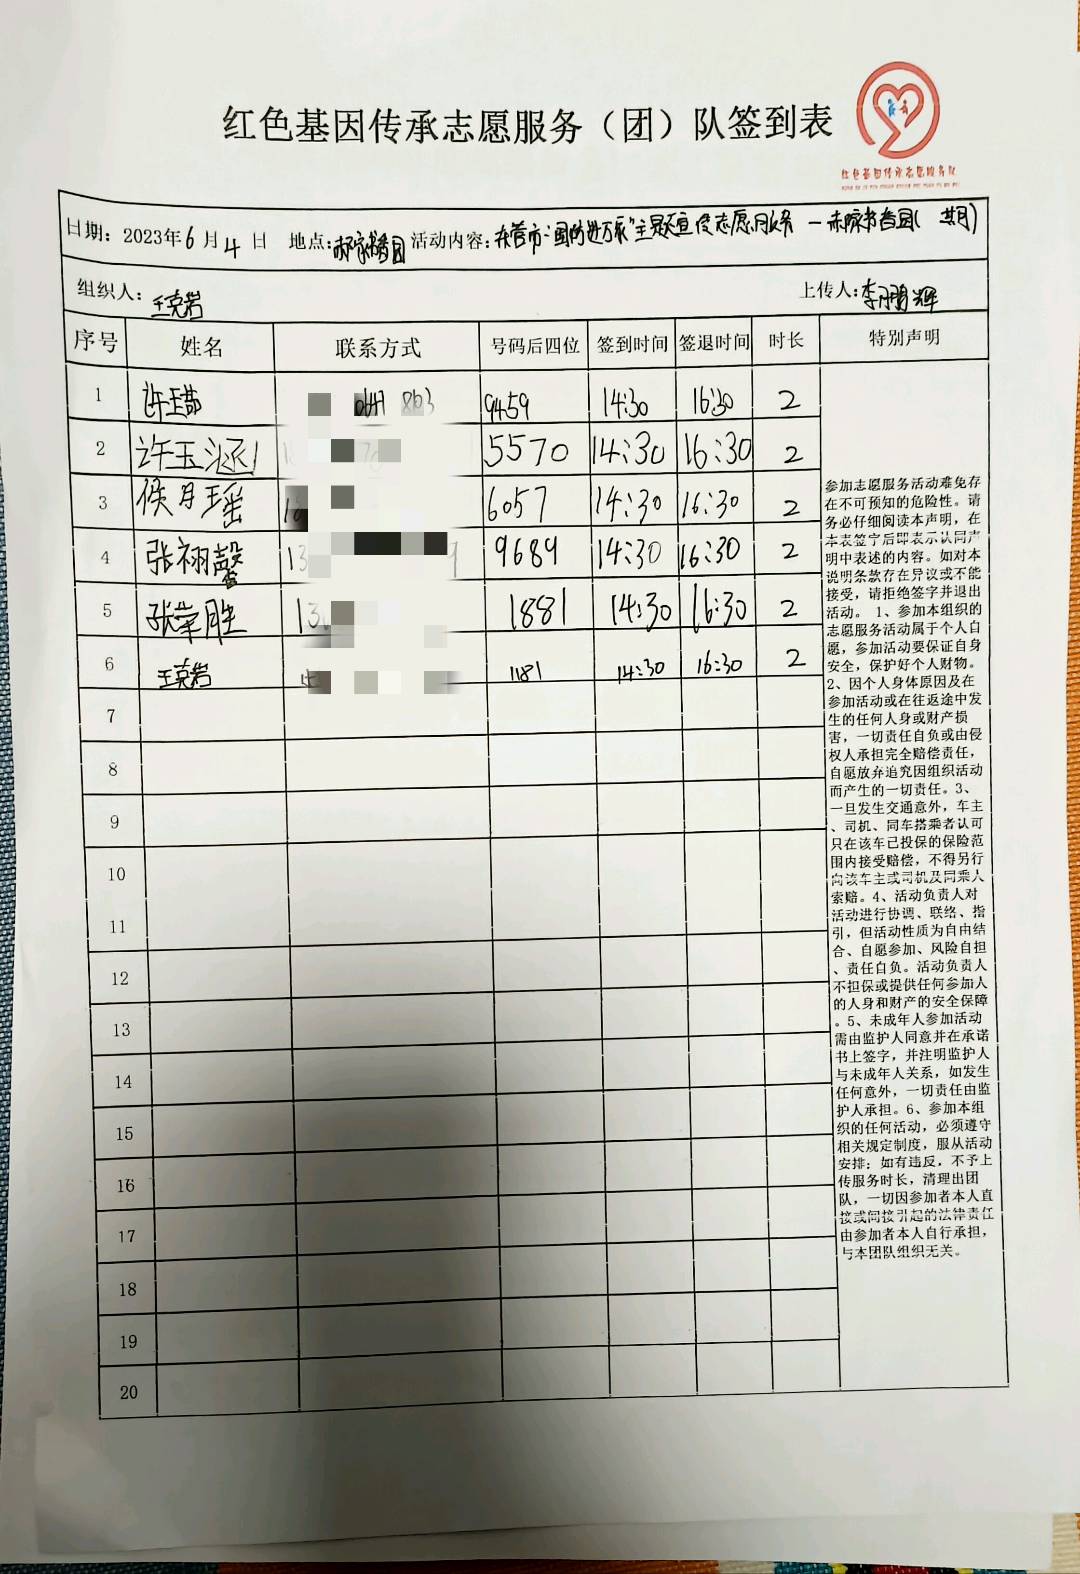 红色基因传承志愿服务（团）队签到表
红色基因传承志愿服务队
日期：2023年6月4日 地点： 活动内容：东营市"国防进万家"主题宣传志愿服务
组织人：王克岩 上传人：李鹏辉
序号 姓名 联系方式 号码后四位 签到时间 签退时间 时长 特别声明
1 许玉茹 9459 14:30 16:30 2
2 许玉涵 5570 14:30 16:30 2
3 侯月瑶 6057 14:30 16:30 2
4 张栩馨 13 9 9689 14:30 16:30 2
5 张荣胜 13 1881 14:30 16:30 2
6 王克岩 1181 14:30 16:30 2
7
8
9
10
11
12
13
14
15
16
17
18
19
20
参加志愿服务活动难免存
在不可预知的危险性。请
务必仔细阅读本声明，在
本表签字后即表示认同声
明中表述的内容。如对本
说明条款存在异议或不能
接受，请拒绝签字并退出
活动。 1、参加本组织的
志愿服务活动属于个人自
愿，参加活动要保证自身
安全，保护好个人财物。
2、因个人身体原因及在
参加活动或在往返途中发
生的任何人身或财产损
害，一切责任自负或由侵
权人承担完全赔偿责任，
自愿放弃追究因组织活动
而产生的一切责任。3、
一旦发生交通意外，车主
、司机、同车搭乘者认可
只在该车已投保的保险范
围内接受赔偿，不得另行
向该车主或司机及同乘人
索赔。4、活动负责人对
活动进行协调、联络、指
引，但活动性质为自由结
合、自愿参加、风险自担
、责任自负。活动负责人
不担保或提供任何参加人
的人身和财产的安全保障
。5、未成年人参加活动
需由监护人同意并在承诺
书上签字，并注明监护人
与未成年人关系，如发生
任何意外，一切责任由监
护人承担。6、参加本组
织的任何活动，必须遵守
相关规定制度，服从活动
安排；如有违反，不予上
传服务时长，清理出团
队，一切因参加者本人直
接或间接引起的法律责任
由参加者本人自行承担，
与本团队组织无关。